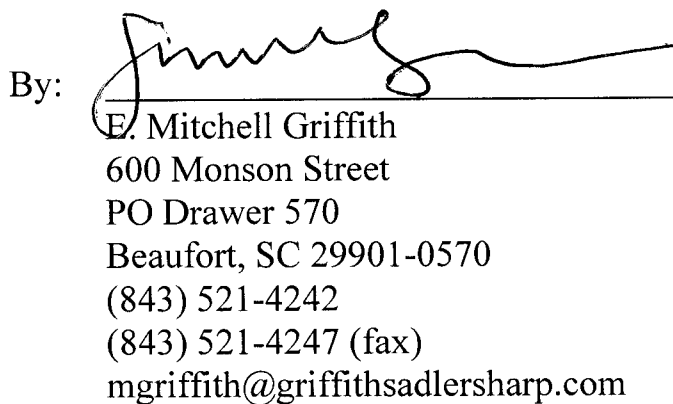 By:
E. Mitchell Griffith
600 Monson Street
PO Drawer 570
Beaufort, SC 29901-0570
(843) 521-4242
(843) 521-4247 (fax)
mgriffith@griffithsadlersharp.com